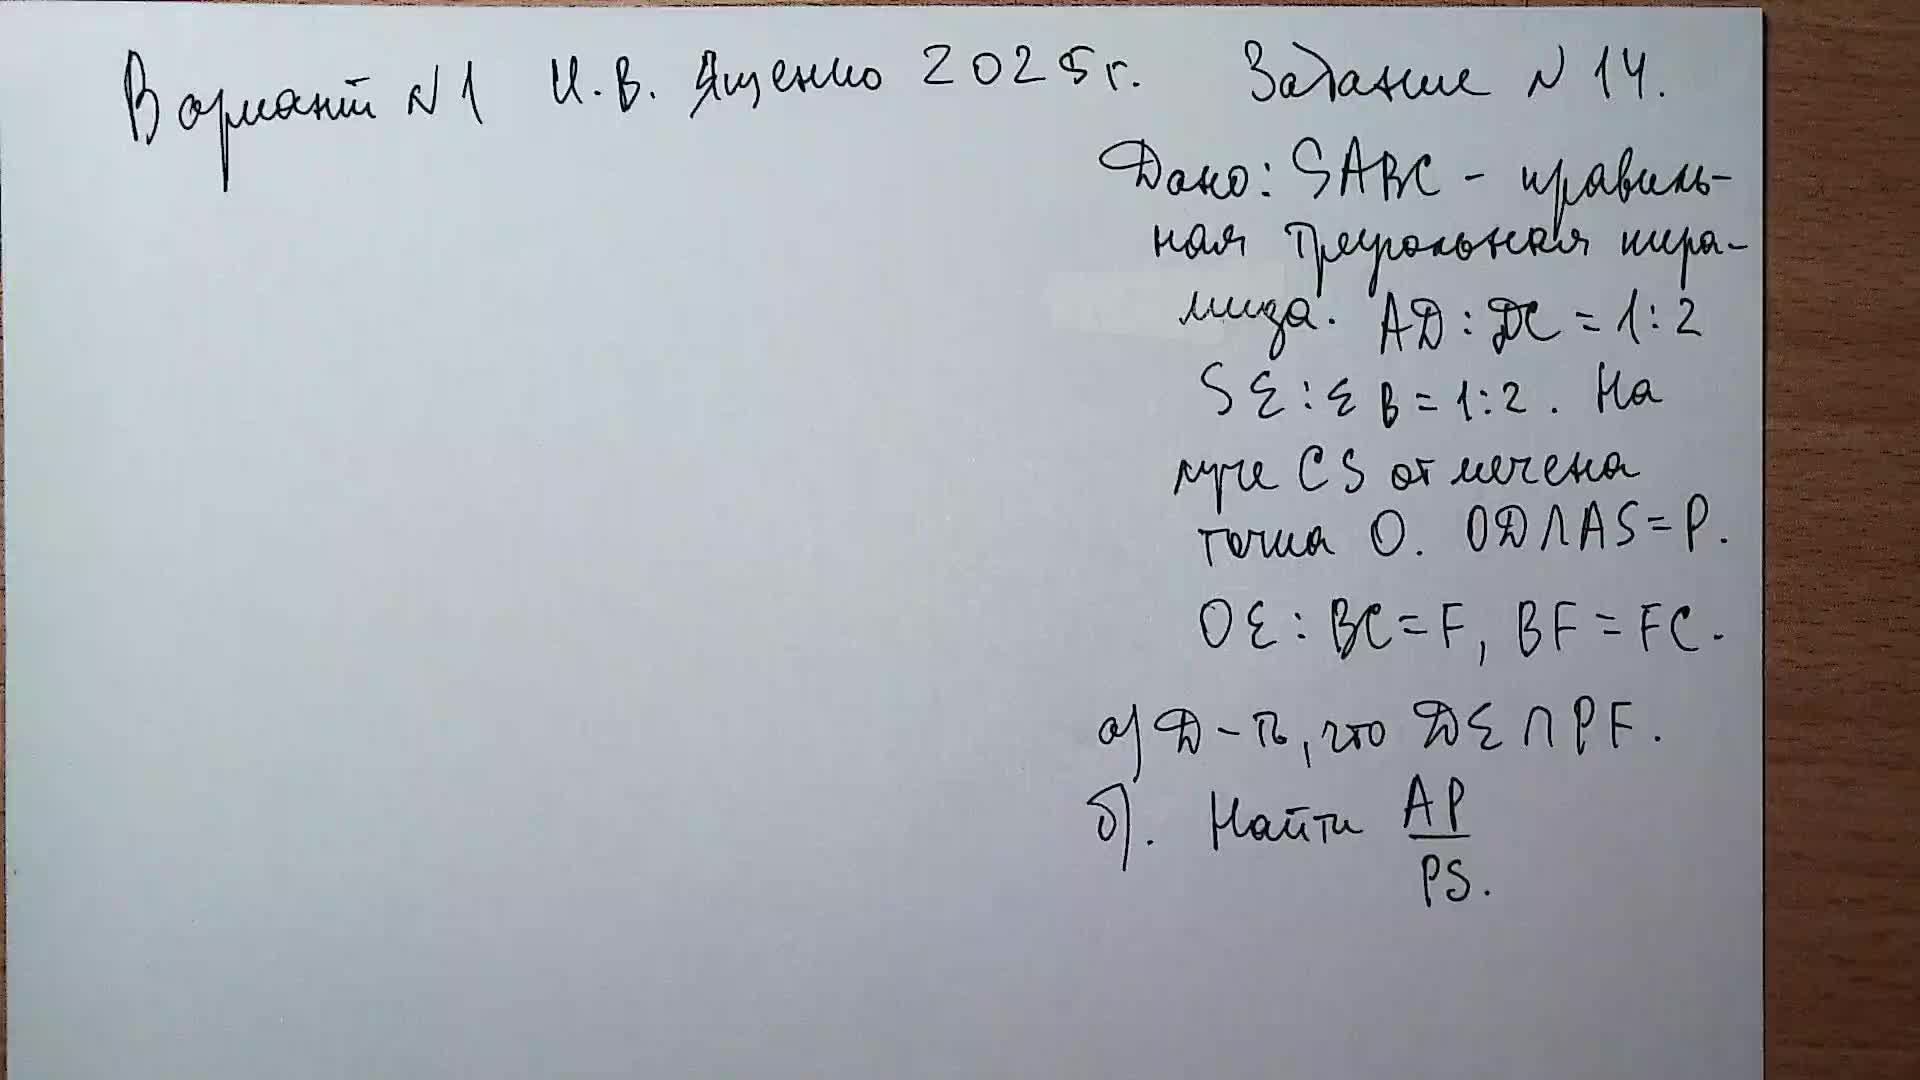 Вариант №1 И.В. Ященко 2025г. Задание №14.
Дано: SABC - правиль-
ная треугольная пира-
мида. AD : DC = 1:2
SE : EB = 1:2. На
луче CS отмечена
точка O. OD∩AS=P.
OE : BC = F, BF = FC.
а) Д-ть, что DE∩PF.
б). Найти AP/PS.